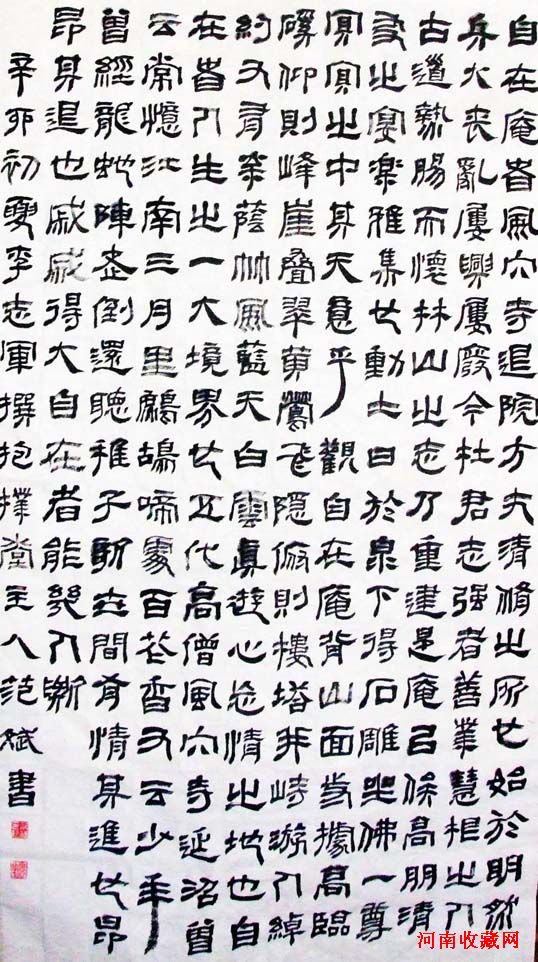 自在庵者風穴寺退院方丈清脩之所也始於明然
兵火喪亂屢興屢廢今杜君志强者善業慧相之人
古道熱腸而懷林山之志乃重建是庵以候高朋清
友之宴樂雅集也動土日於泉下得石雕坐佛一尊
冥冥之中其天意乎觀自在庵背山面據高臨
磵仰則峰崖疊翠黄鶯飛隱俯則樓塔并峙游人綽
約又有柰蔭竹風藍天白雲真遊心忘情之地也自
在者人生之一大境界也五代高僧風穴寺延沼曾
云常憶江南三月里鷓鴣啼處百花香又云少年
曾經龍蛇陣老倒還聽稚子歌世間有情其進也昂
昂其退也戚戚得大自在者能幾人斯
辛卯初夏李志軍撰抱樸堂主人范斌書
河南收藏网